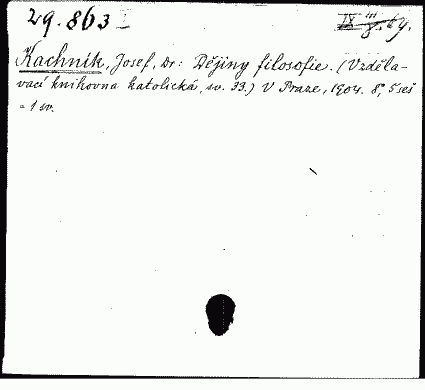 29.863
Kachník, Josef, Dr: Dějiny filosofie. (Vzděla-
vací knihovna katolická, sv. 33.) V Praze, 1904. 8°, 5 seš
= 1 sv.